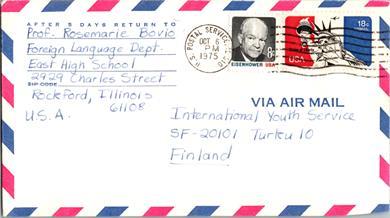 AFTER 5 DAYS RETURN TO
Prof. Rosemarie Bovio
Foreign Language Dept.
East High School
2929 Charles Street
ZIP CODE
Rockford, Illinois
61108
U.S.A.
U.S. POSTAL SERVICE
OCT 6
PM
1975
EISENHOWER USA
8c
18c
USA
VIA AIR MAIL
International Youth Service
SF-20101 Turku 10
Finland